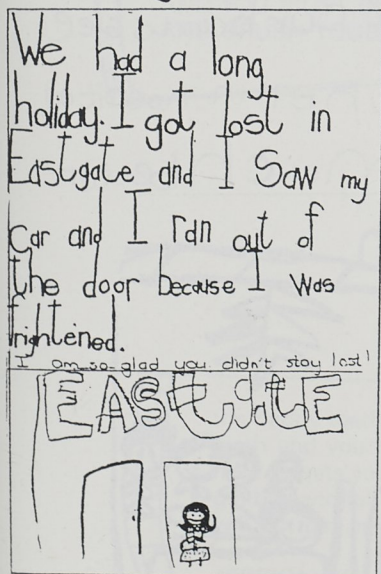 We had a long
holiday. I got lost in
Eastgate and I Saw my
car and I ran out of
the door because I was
frightened.
I am so glad you didn't stay lost!
EASTgatE